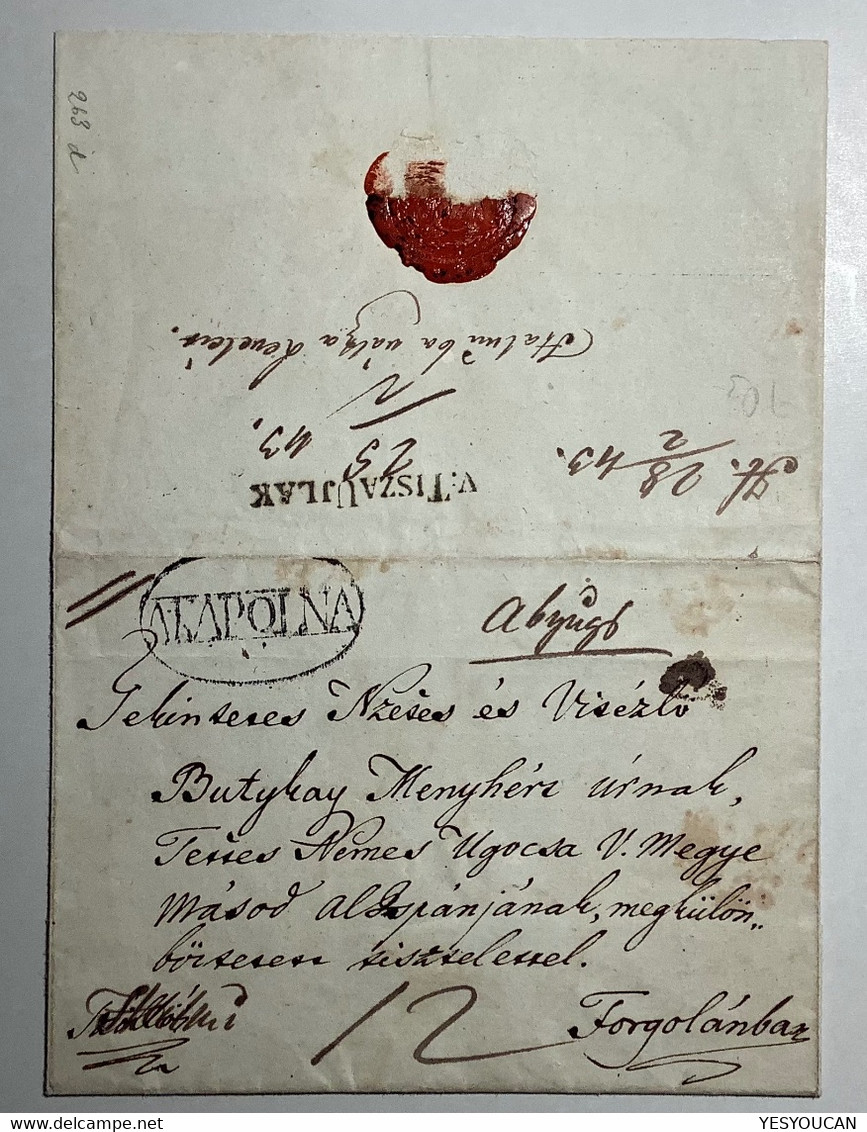 263 d
Halmiba vátza levelet.
V: TISZAUJLAK
23
43.
H. 28/2 43.
N.KAPOLNA
Tekintetes Nzetes és Vitézlő
Butykay Menyhért úrnak,
Tettes Nemes Ugocsa V. Megye
Másod alIspánjának, megkülön„
böztetett tisztelettel.
12
Forgolánban
YESYOUCAN